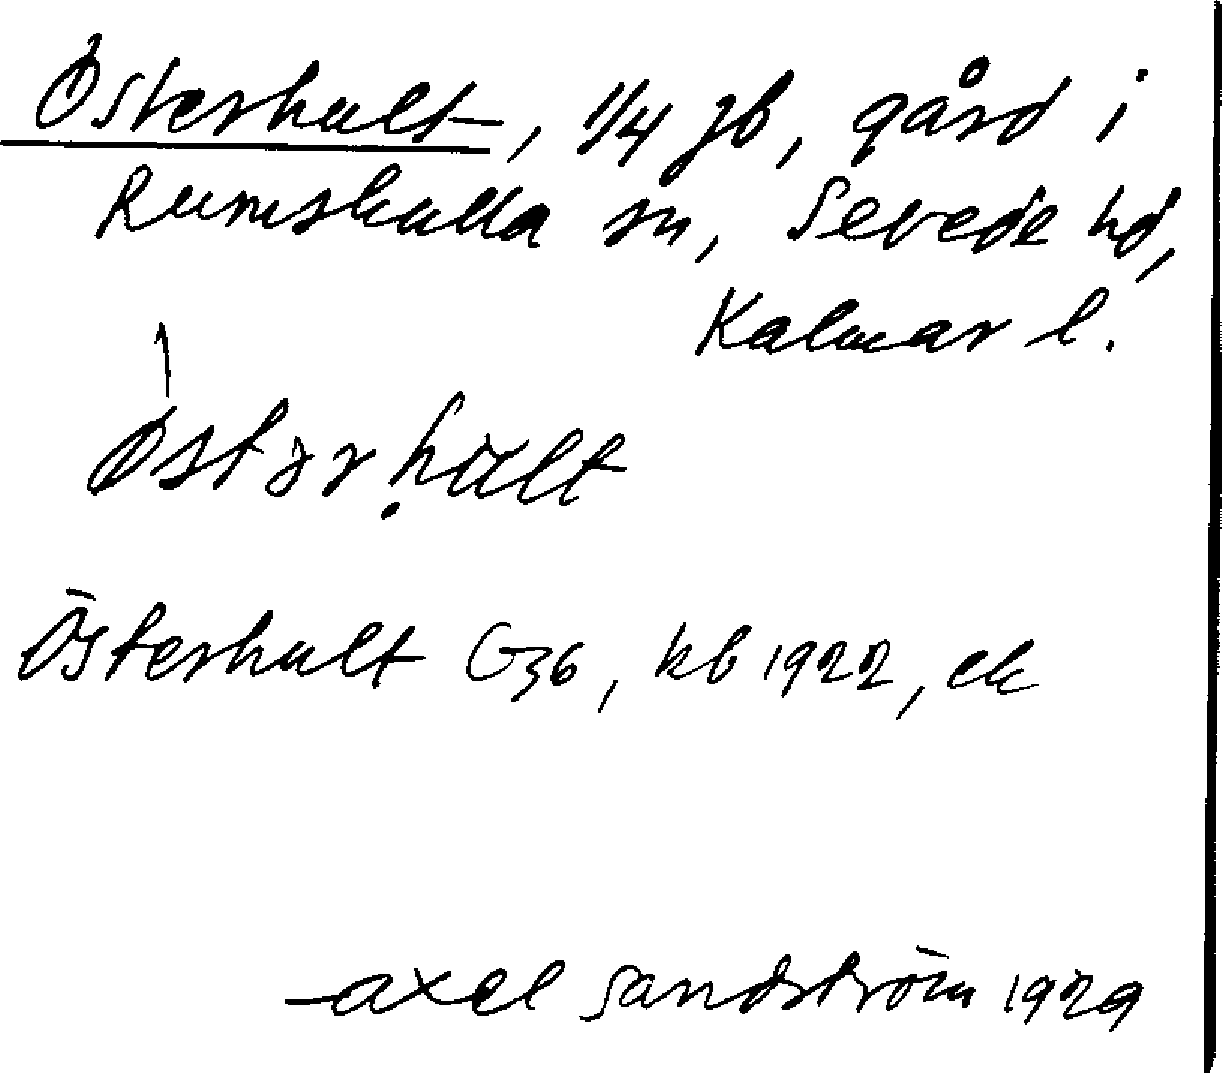 Österhult, 1/4 jb, gård i
Rumskulla sn, Sevede hd,
Kalmar l.
Österhult G36, kb 1922, ek
Axel Sandström 1929